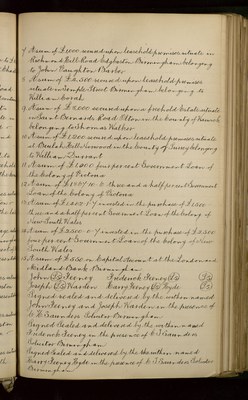 A sum of £1,000 secured upon leasehold premises situate in
Richmond Hill Road Edgbaston Birmingham belonging
to John Vaughton Barber
A sum of £ 2,500 secured upon leasehold premises
situate in Temple Street Birmingham belonging to
William
A sum of £ 2,000 secured upon a freehold Estate situate
in Saint Bernards Road Olton in the County of Warwick
belonging to Thomas Walker
A sum of £1200 secured upon leasehold premises situate
at Heath in the County of Surrey belonging
to William Durrant
A sum of £1000 four per cent Government Loan of
the Colony of Victoria
A sum of £1007 10 0 three and a half per cent Government
Loan of the Colony of Victoria
A sum of £ invested in the purchase of £
three and a half per cent Government Loan of the colony of
New South Wales
A sum of £2500 invested in the purchase of £2500
four per cent Government Loan of the colony of New
South Wales
A sum of £ 350 on Capital Account at the London and
Midland Bank Birmingham
John Feeney Frederick Feeney
Joseph Harden Harry Feeney Hyde
Signed sealed and delivered by the within named
John Feeney and Joseph Harden in the presence of
C. T. Saunders Solicitor Birmingham
Signed Sealed and delivered by the within named
Frederick Feeney in the presence of C. T. Saunders
Solicitor Birmingham
Signed Sealed and delivered by the within named
Harry Feeney Hyde in the presence of C. T. Saunders Solicitor
Birmingham